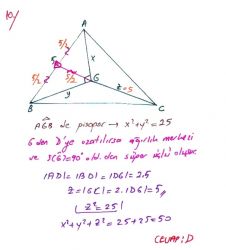 10/
A
5/2
x
5/2
5/2
G
z=5
y
B
C
AGB de pisagor → x²+y²=25
G den D'ye uzatılırsa ağırlık merkezi
ve s(G)=90° old.den süper üçlü oluşur.
|AD|=|BD|=|DG|=2.5
z=|GC|=2.|DG|=5
z²=25
x²+y²+z²=25+25=50
CEVAP:D